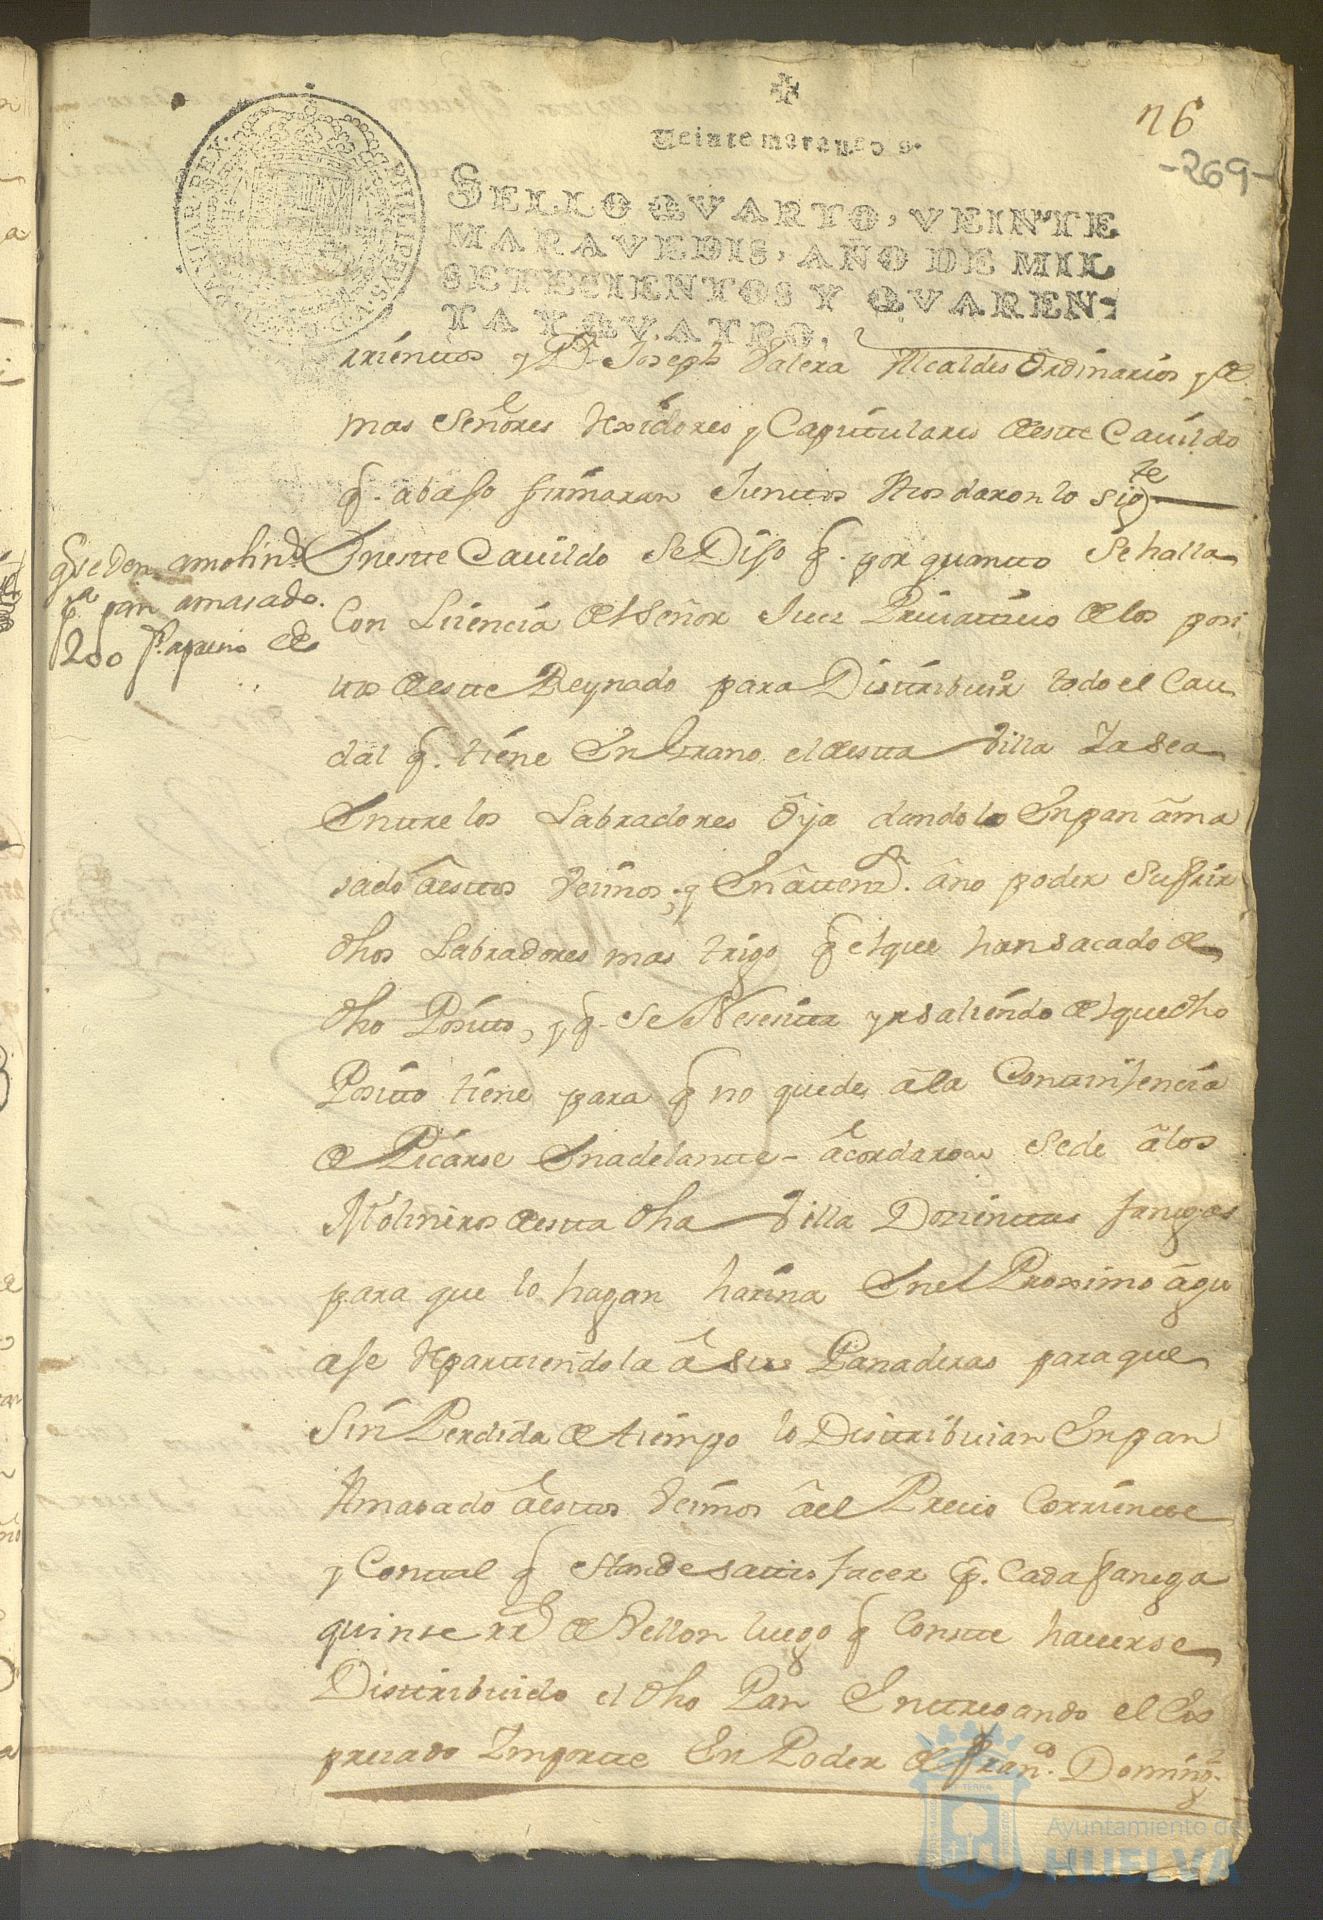 76
-269-
Veinte maravedis.
SELLO QVARTO, VEINTE
MARAVEDIS, AÑO DE MIL
SETECIENTOS Y QVAREN-
TA Y QVATRO.
PHILIPPUS V D G HISPANIAR REX
rrientos y Dn Joseph Valera Alcaldes Ordinarios y de
mas Señores Rexidores y Capitulares de este Cavildo
q. abaxo firmaran Juntos Acordaron lo sigte
Qe se den a molinos
pa pan amasado
200 fs a precio de
En este Cavildo Se Dijo q. por quanto Se halla
Con Lisencia del Señor Juez Privativo de los posi
tos de este Reynado para Distribuir todo el Cau
dal q. tiene En grano el de esta Villa Ya sea
Entre los Labradores o ya dandolo En pan ama
sado a estos Vesinos, y En atenzn. a no poder Sufrir
dhos Labradores mas trigo q el que han sacado de
dho Posito, y q. se Nesesita yr saliendo del que dho
Posito tiene para q no quede a la Contingencia
de Picarse En adelante - acordaron Se de a los
Molineros de esta dha Villa Dozientas fanegas
para que lo hagan harina En el Proximo agu
aje Repartiendola a sus Panaderas para que
Sin Perdida de tiempo lo Distribuian En pan
Amasado a estos Vesinos a el Precio Corriente
y Con tal q Han de satisfacer p. Cada fanega
quinse rrs de Vellon luego q Conste haverse
Distribuido el dho Pan Entregando el Es
presado Importe En Poder de Franco. Domingz
Ayuntamiento de
HUELVA